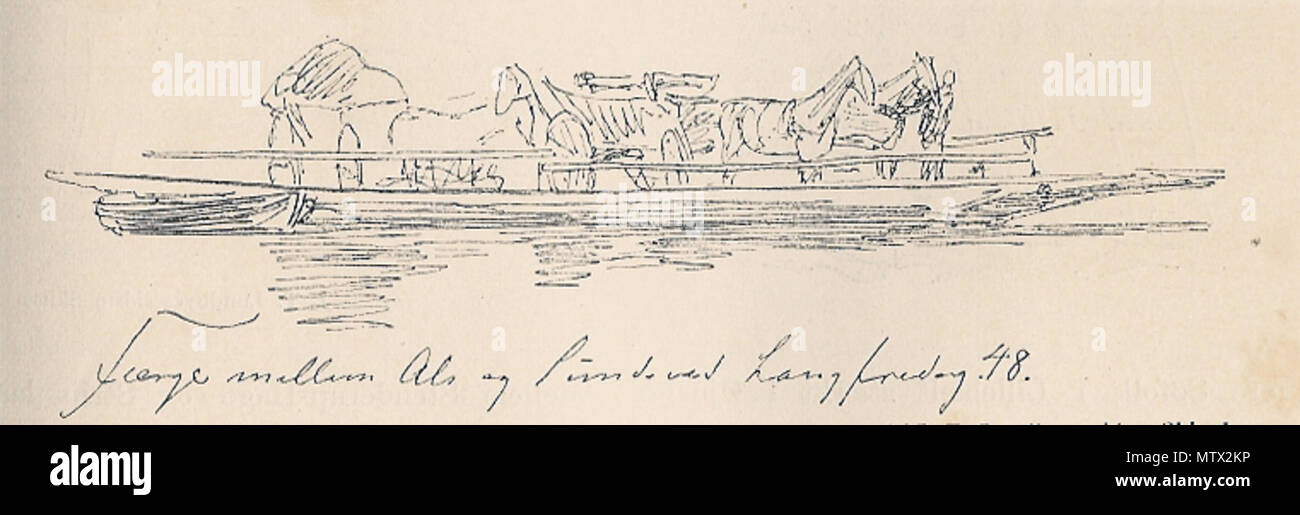 Færge mellem Als og Sundeved Langfredag 48.
alamy
Image ID: MTX2KP
www.alamy.com